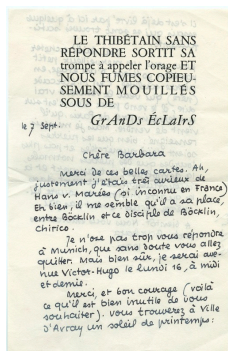 LE THIBÉTAIN SANS
RÉPONDRE SORTIT SA
trompe à appeler l'orage ET
NOUS FUMES COPIEU-
SEMENT MOUILLÉS
SOUS DE
GrAnDs ÉcLaIrS
le 7 sept.
Chère Barbara
Merci de ces belles cartes. Ah,
justement j'étais très curieux de
Hans v. Marées (oi inconnu en France)
Eh bien, il me semble qu'il a sa place,
entre Böcklin et ce disciple de Böcklin,
Chirico.
Je n'ose pas trop vous répondre
à Munich, que sans doute vous allez
quitter. Mais bien sûr, je serai ave-
nue Victor-Hugo le lundi 16, à midi
et demie.
Merci, et bon courage (voilà
ce qu'il est bien inutile de vous
souhaiter). Vous trouverez à Ville
d'Avray un soleil de printemps.